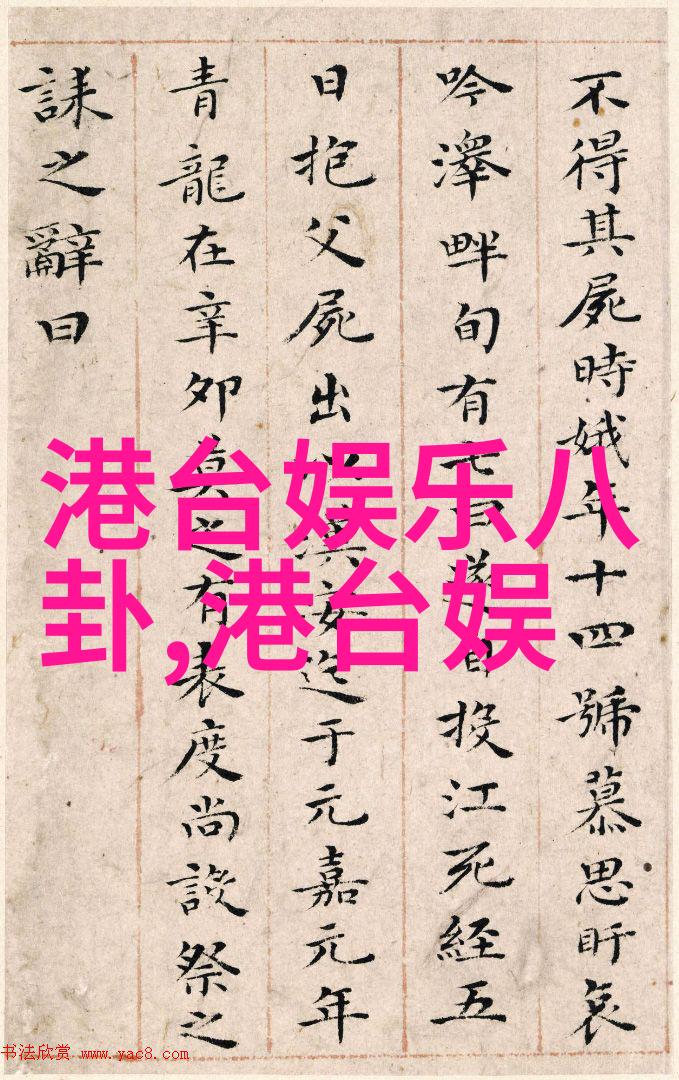 不得其屍時娥年十四號慕思盱哀
吟澤畔旬有七日遂自投江死經五
日抱父屍出以漢安迄于元嘉元年
青龍在辛卯莫之有表度尚設祭之
誄之辭曰
港台娱乐八
卦,港台娱
书法欣赏 www.yac8.com